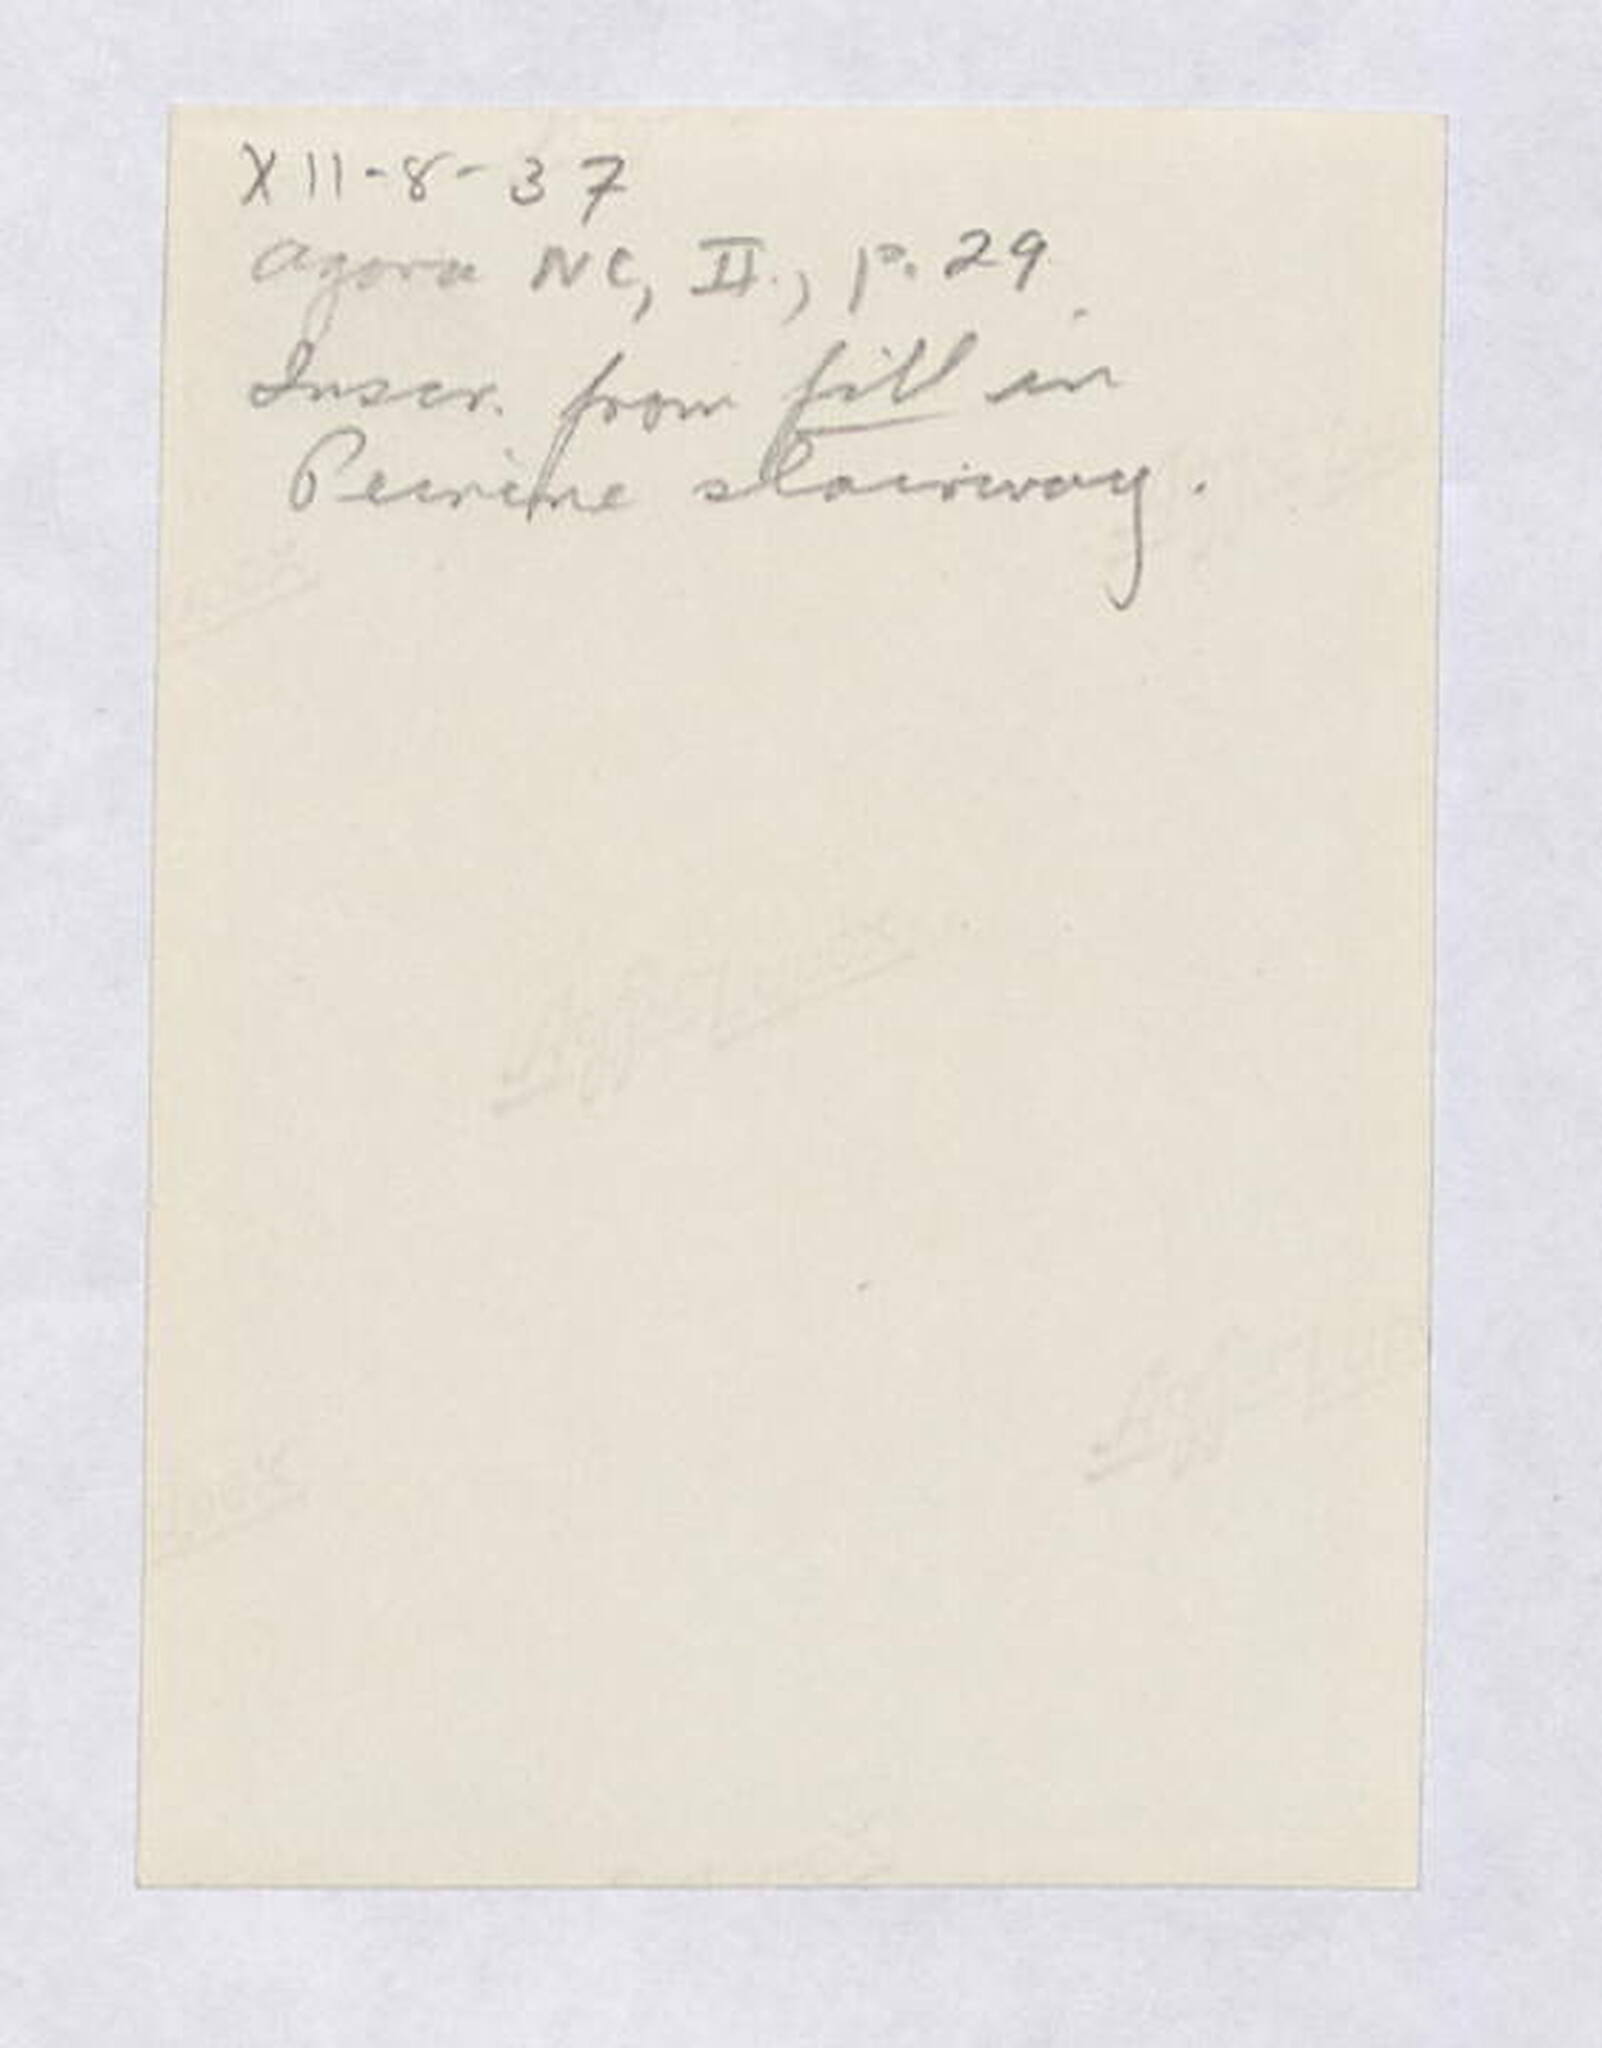 XII-8-37
Agora NC, II., p. 29
Inscr. from fill in
Peirene stairway.